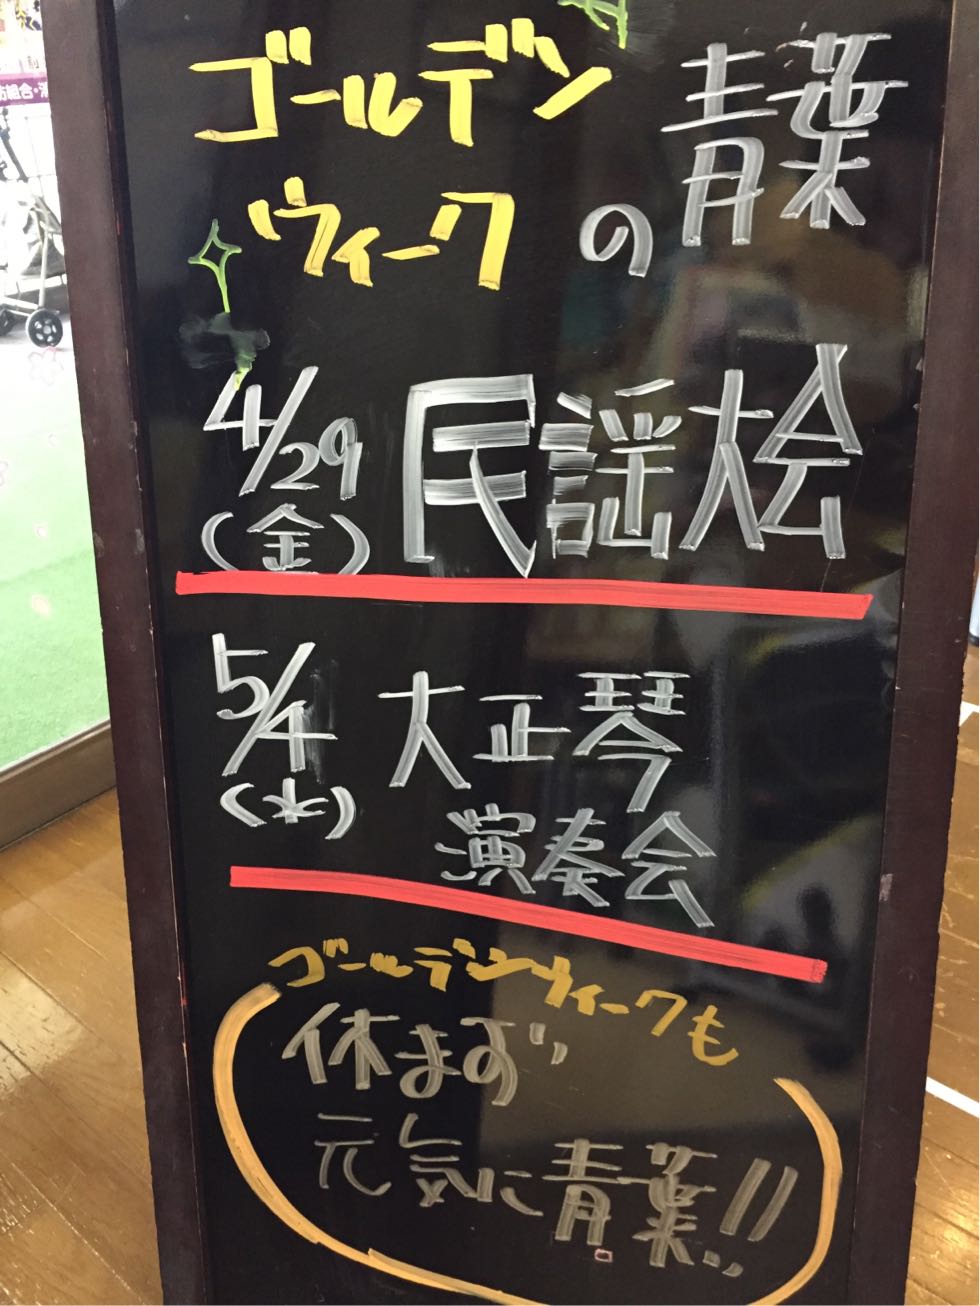 ゴールデン
ウィークの青葉
4/29
(金)
民謡大会
5/4
(水)
大正琴
演奏会
ゴールデンウィークも
休まず
元気に青葉!!
組合・